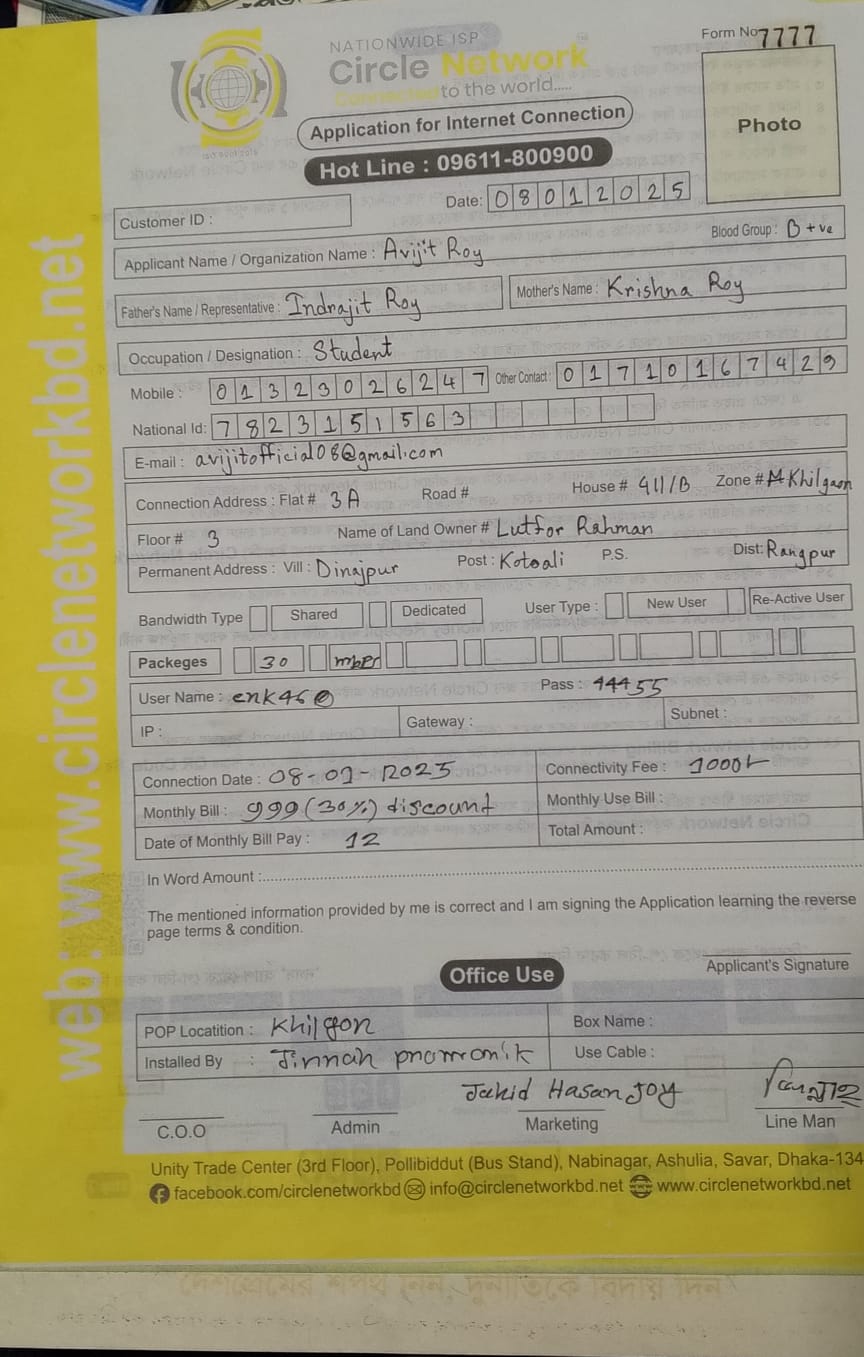 NATIONWIDE ISP
Form No 7777
Circle Network
Connected to the world.....
Application for Internet Connection
Photo
Hot Line : 09611-800900
Date: 08012025
Customer ID :
Blood Group : B +ve
Applicant Name / Organization Name : Avijit Roy
Father's Name / Representative : Indrajit Roy Mother's Name : Krishna Roy
Occupation / Designation : Student
Mobile : 01323026247 Other Contact : 01710167429
National Id: 7823151563
E-mail : avijitofficial08@gmail.com
Connection Address : Flat # 3A Road # House # 911/B Zone # Khilgaon
Floor # 3 Name of Land Owner # Lutfor Rahman
Permanent Address : Vill : Dinajpur Post : Kotoali P.S. Dist: Rangpur
Bandwidth Type Shared Dedicated User Type : New User Re-Active User
Packeges 30 mbps
User Name : Pass : 44455
IP : Gateway : Subnet :
Connection Date : 08-01-2025 Connectivity Fee : 1000
Monthly Bill : 999 (30%) discount Monthly Use Bill :
Date of Monthly Bill Pay : 12 Total Amount :
In Word Amount :
The mentioned information provided by me is correct and I am signing the Application learning the reverse
page terms & condition.
Applicant's Signature
Office Use
POP Locatition : Khilgon Box Name :
Installed By : Jinnah pramonik Use Cable :
Jahid Hasan Joy
C.O.O Admin Marketing Line Man
Unity Trade Center (3rd Floor), Pollibiddut (Bus Stand), Nabinagar, Ashulia, Savar, Dhaka-134
facebook.com/circlenetworkbd info@circlenetworkbd.net www.circlenetworkbd.net
web: www.circlenetworkbd.net